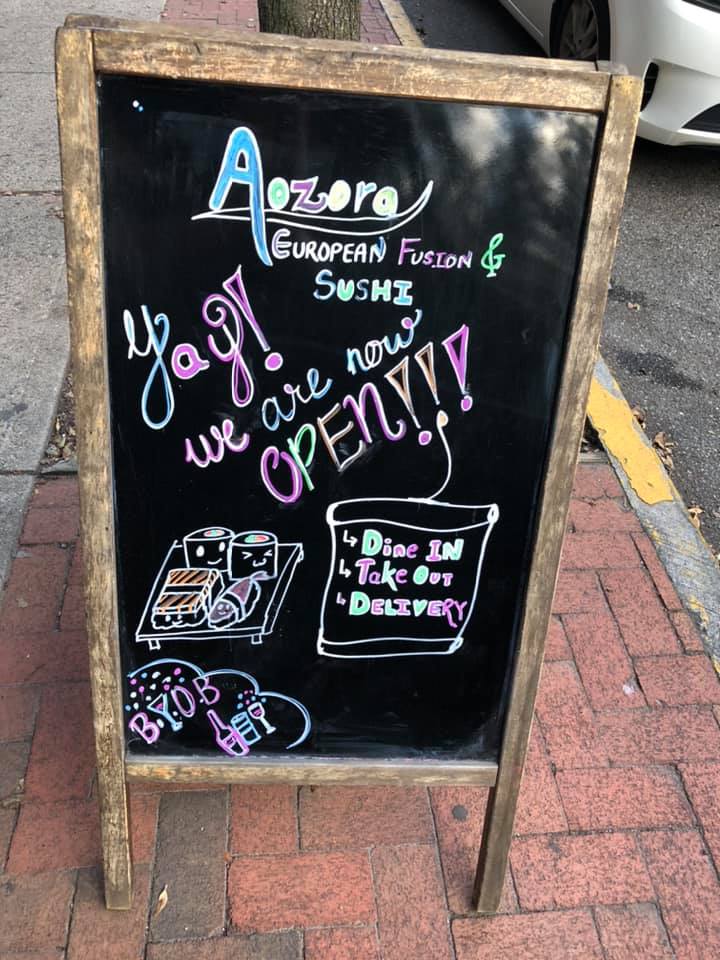 Aozora
EUROPEAN FUSION &
SUSHI
Yay!
we are now
OPEN!!!
↳ Dine IN
↳ Take OUT
↳ DELIVERY
B.Y.O.B